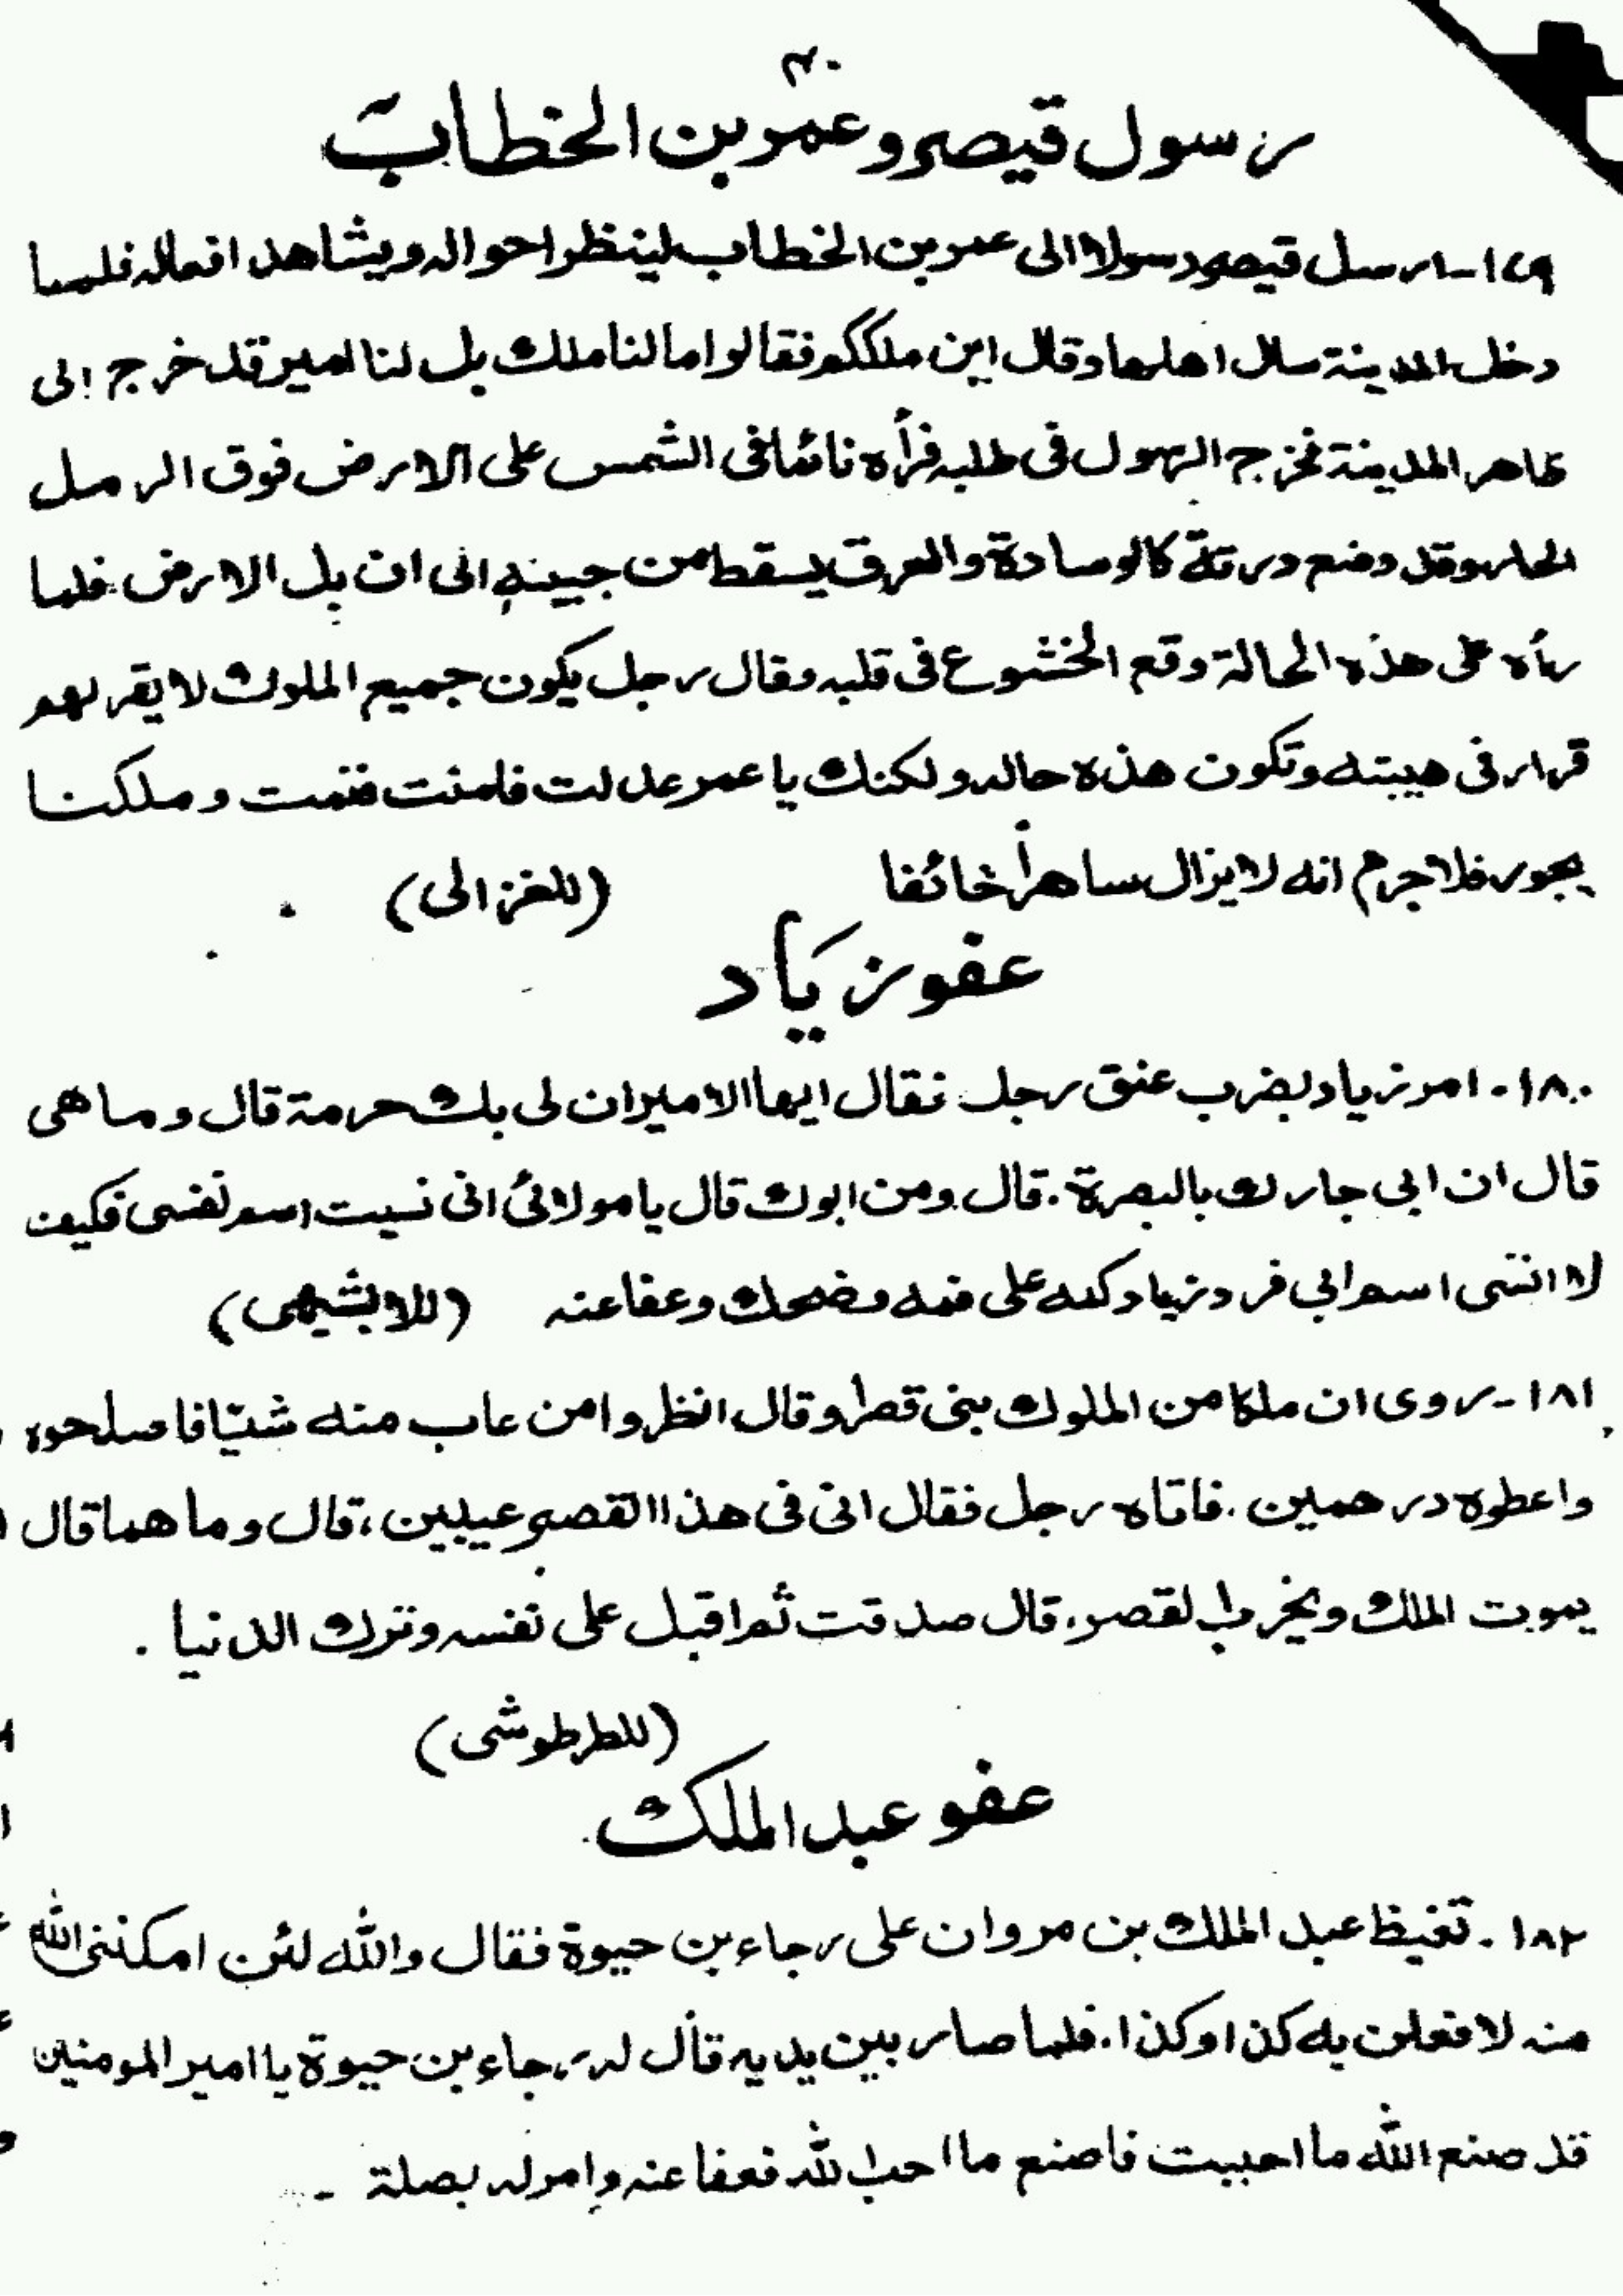 ٣٠
رسول قيصر وعمر بن الخطاب
١٧٩- ارسل قيصر رسولا الى عمر بن الخطاب لينظر احواله ويشاهد افعاله فلما
دخل المدينة سال اهلها وقال اين ملككم فقالوا ما لنا ملك بل لنا امير قد خرج الى
ظاهر المدينة فخرج الرسول فى طلبه فرأه نائما فى الشمس على الارض فوق الرمل
الحار وقد وضع درته كالوسادة والعرق يسقط من جبينه الى ان بل الارض فلما
رأه على هذه الحالة وقع الخشوع فى قلبه وقال رجل يكون جميع الملوك لا يقر لهم
قرار فى هيبته وتكون هذه حاله ولكنك يا عمر عدلت فامنت فنمت وملكنا
يجور فلا جرم انه لا يزال ساهرا خائفا (للغزالى)
عفو زياد
١٨٠- امر زياد بضرب عنق رجل فقال ايها الامير ان لى بك حرمة قال وما هى
قال ان ابى جارك بالبصرة. قال ومن ابوك قال يا مولائى انى نسيت اسم نفسى فكيف
لا انسى اسم ابي فرد زياد كمه على فمه وضحك وعفا عنه (للابشيهى)
١٨١- روى ان ملكا من الملوك بنى قصرا وقال انظروا من عاب منه شئيا فاصلحوه
واعطوه درهمين. فاتاه رجل فقال انى فى هذا القصر عيبين، قال وما هما قال
يموت الملك ويخرب القصر، قال صدقت ثم اقبل على نفسه وترك الدنيا.
(للطرطوشى)
عفو عبد الملك
١٨٢. تغيظ عبد الملك بن مروان على رجاء بن حيوة فقال والله لئن امكننى الله
منه لافعلن به كذا وكذا. فلما صار بين يديه قال له رجاء بن حيوة يا امير المومنين
قد صنع الله ما احببت فاصنع ما احب الله فعفا عنه وامر له بصلة -